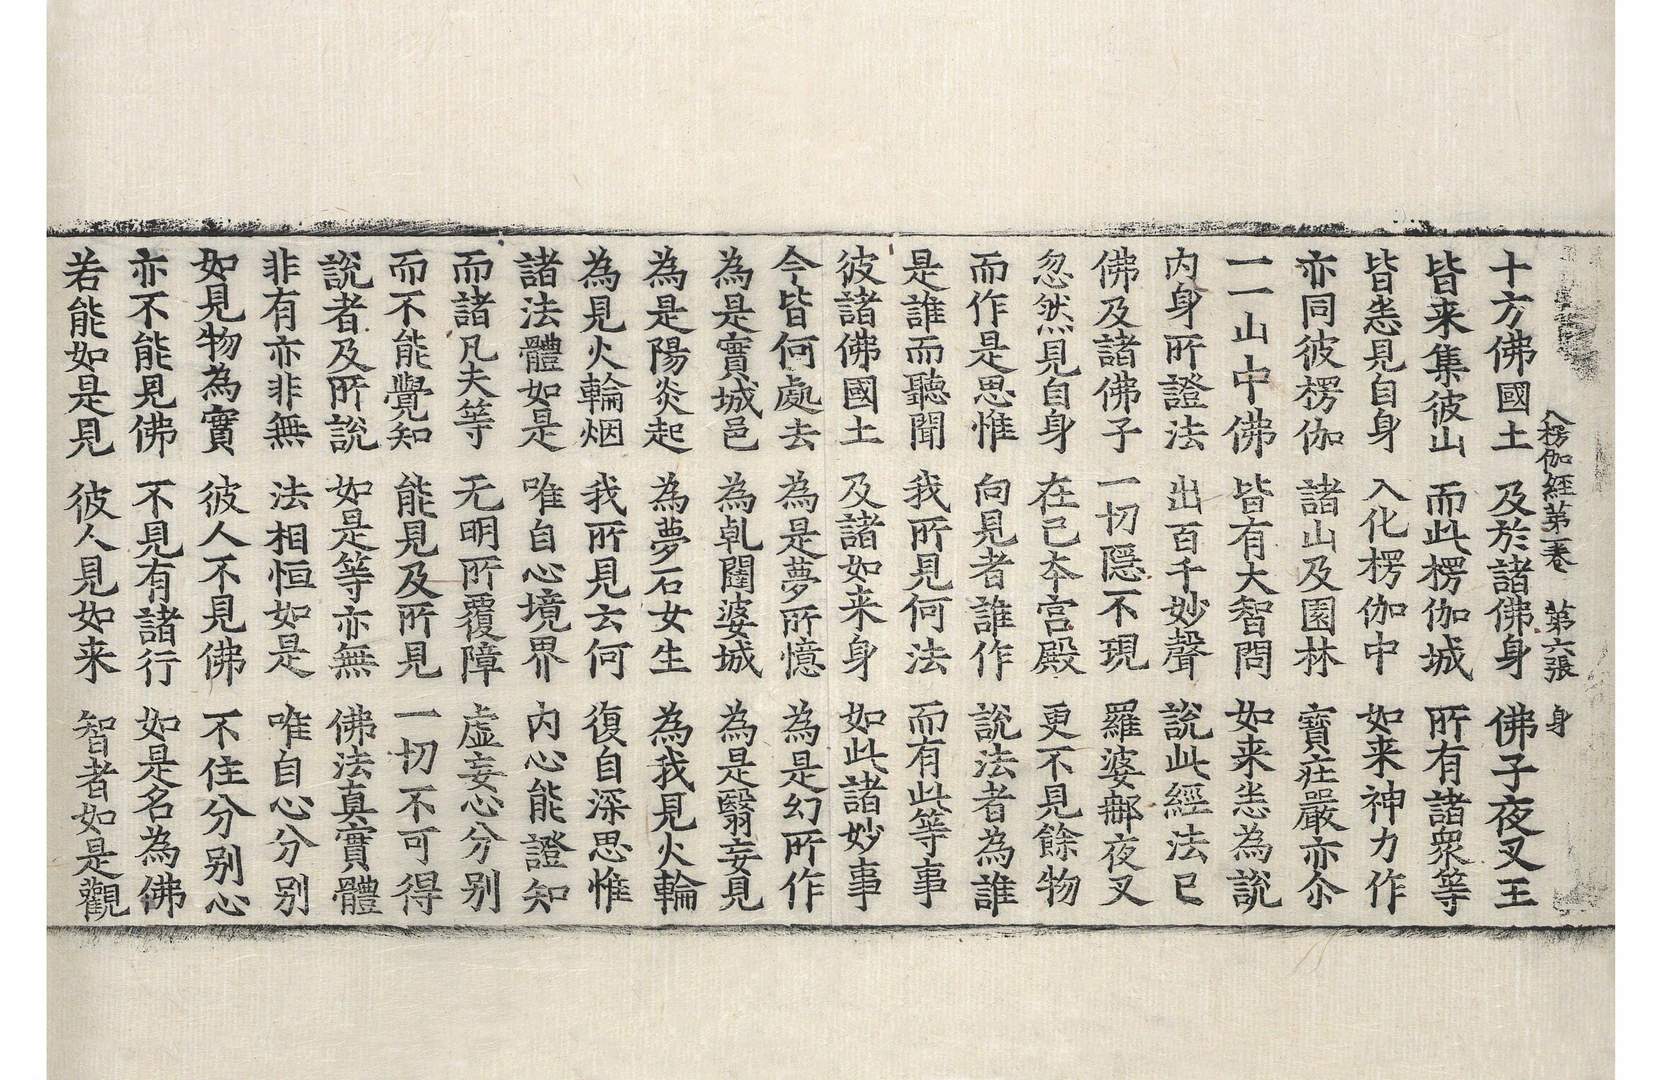 入楞伽經第一卷　第六張　身
十方佛國土　及於諸佛身　佛子夜叉王
皆来集彼山　而此楞伽城　所有諸衆等
皆悉見自身　入化楞伽中　如来神力作
亦同彼楞伽　諸山及園林　寶莊嚴亦尒
一一山中佛　皆有大智問　如来悉為說
内身所證法　出百千妙聲　說此經法已
佛及諸佛子　一切隱不現　羅婆㢠夜叉
忽然見自身　在已本宫殿　更不見餘物
而作是思惟　向見者誰作　說法者為誰
是誰而聽聞　我所見何法　而有此等事
彼諸佛國土　及諸如来身　如此諸妙事
今皆何處去　為是夢所憶　為是幻所作
為是實城邑　為乹闥婆城　為是翳妄見
為是陽炎起　為夢石女生　為我見火輪
為見火輪烟　我所見云何　復自深思惟
諸法體如是　唯自心境界　内心能證知
而諸凡夫等　无明所覆障　虛妄心分别
而不能覺知　能見及所見　一切不可得
說者及所說　如是等亦無　佛法真實體
非有亦非無　法相恒如是　唯自心分别
如見物為實　彼人不見佛　不住分别心
亦不能見佛　不見有諸行　如是名為佛
若能如是見　彼人見如来　智者如是觀